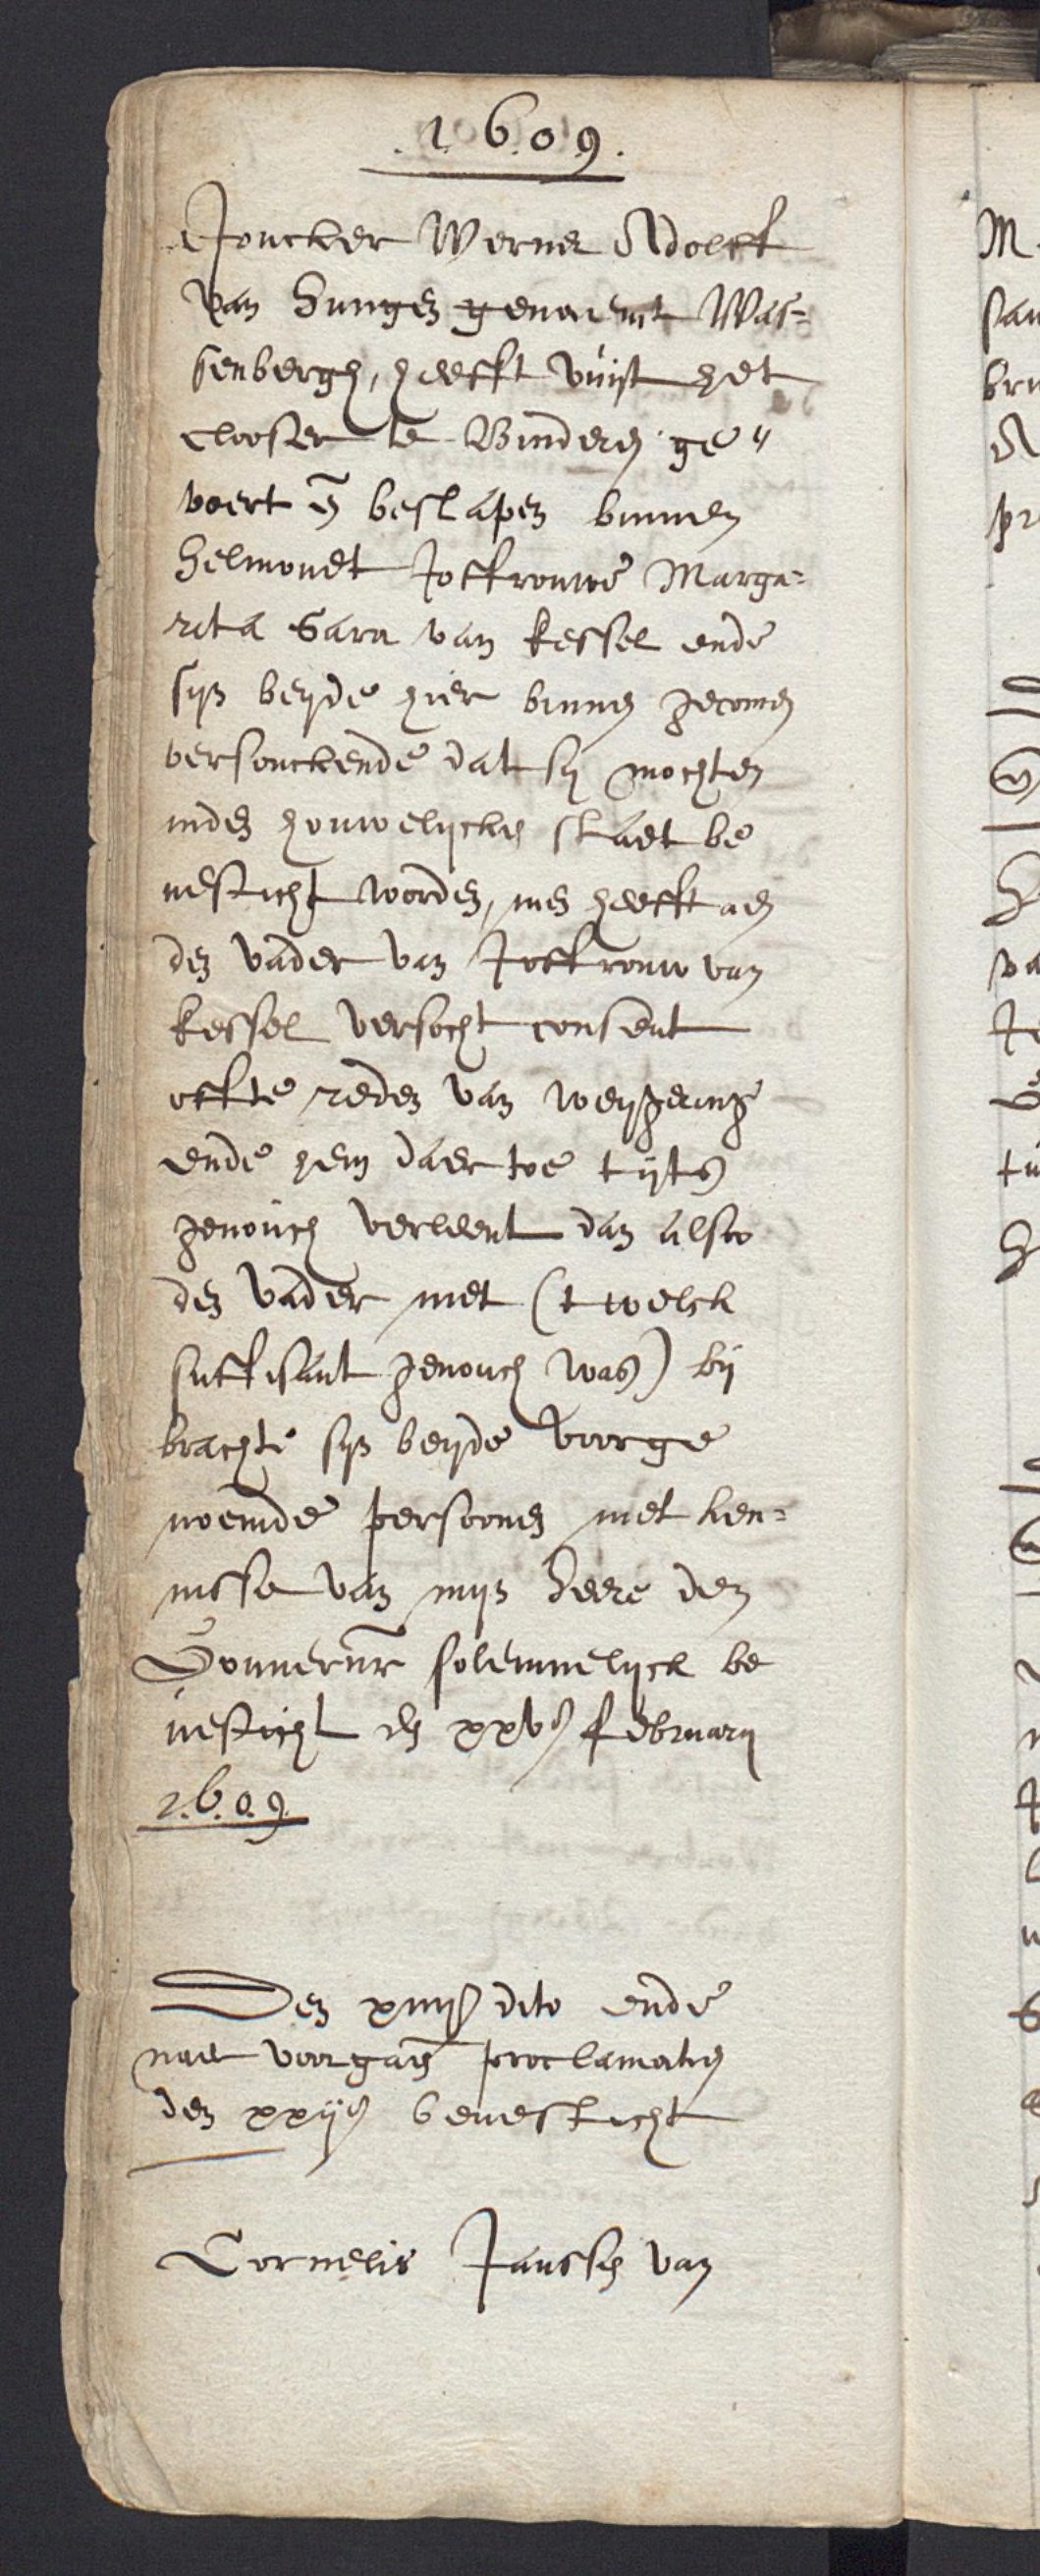 .1.6.0.9.
Joncker Werner Adolff
van Hunge genaempt Was=
senbergh, heefft vuijst het
clooster te Binderen ge"
voert en beslapen binnen
Helmondt Joffrouwe Marga=
rita Sara van Kessel ende
sijn beijde hier binnen gecomen
versouckende dat sij mochten
inden houwelijcken staet be
vesticht worden, men heefft aen
den vader van Joffrouw van
Kessel versocht consent
offte reden van weijgering
ende hem daer toe tijts
genouch verleent dan alsoo
den vader niet (t welck
suffisant genouch was) bij
brachte sijn beijde voorge
noemde persoonen met ken=
nisse van mijn Heere den
Gouverneur solemnelijck be
vesticht den xxven februarij
1.6.0.9.
Den xiiijen dito ende
naer voorgaen proclamatien
den xxijen bevesticht
Cornelis Janssen van
M
van